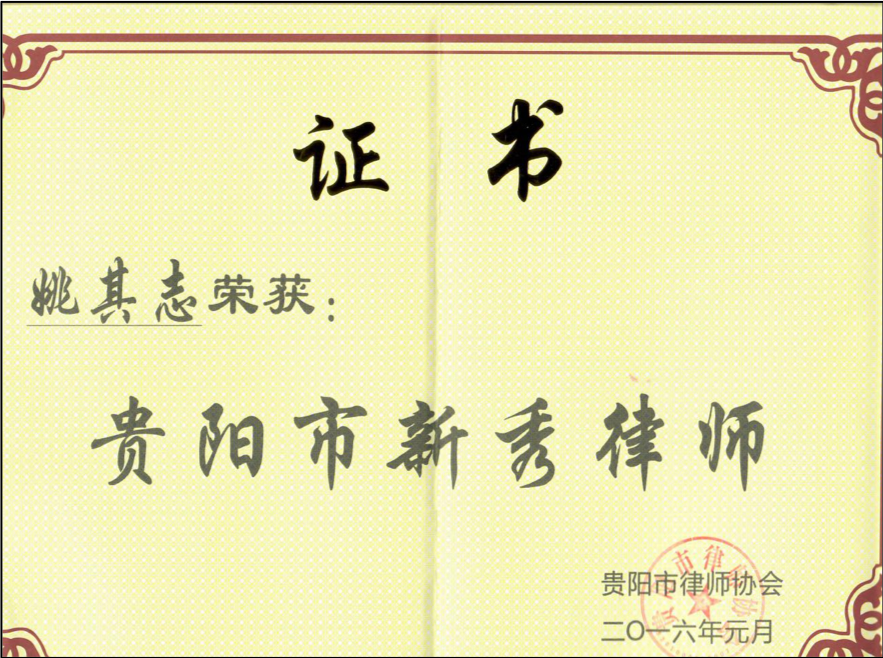 证 书
姚其志荣获：
贵阳市新秀律师
贵阳市律师协会
二〇一六年元月